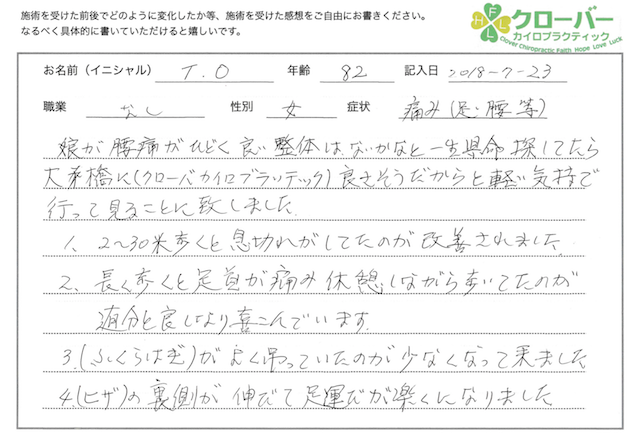 施術を受けた前後でどのように変化したか等、施術を受けた感想をご自由にお書きください。
なるべく具体的に書いていただけると嬉しいです。
クローバー
カイロプラクティック
Clover Chiropractic Faith Hope Love Luck
お名前（イニシャル） T.O 年齢 82 記入日 2018-7-23
職業 なし 性別 女 症状 痛み(足・腰等)
娘が腰痛がひどく良い整体はないかなと一生県命探してたら
大茅橋に(クローバカイロプラッテック)良さそうだからと軽い気持で
行って見ることに致しました.
1. 2〜30米歩くと息切れがしてたのが改善されました.
2. 長く歩くと足首が痛み休憩しながら歩いてたのが
随分と良くなり喜こんでいます.
3.(ふくらはぎ)が良く吊っていたのが少なくなって来ました
4.(ヒザ)の裏側が伸びて足運びが楽くになりました